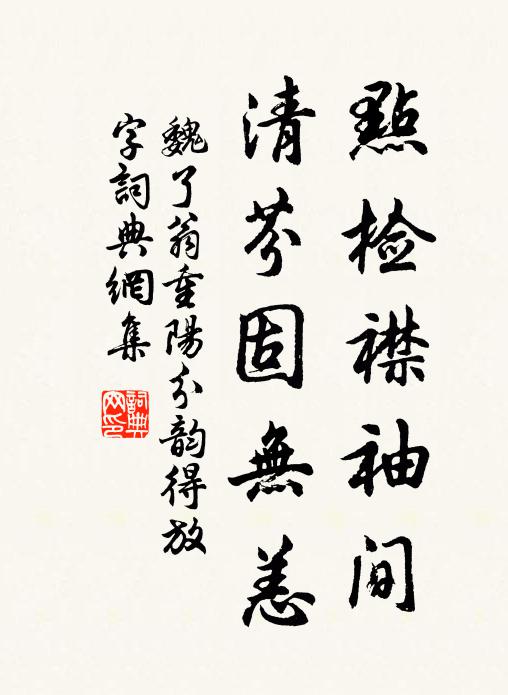 點檢襟袖間
清芬固無恙
魏了翁重陽分韵得放
字詞典網集
詞典
网印